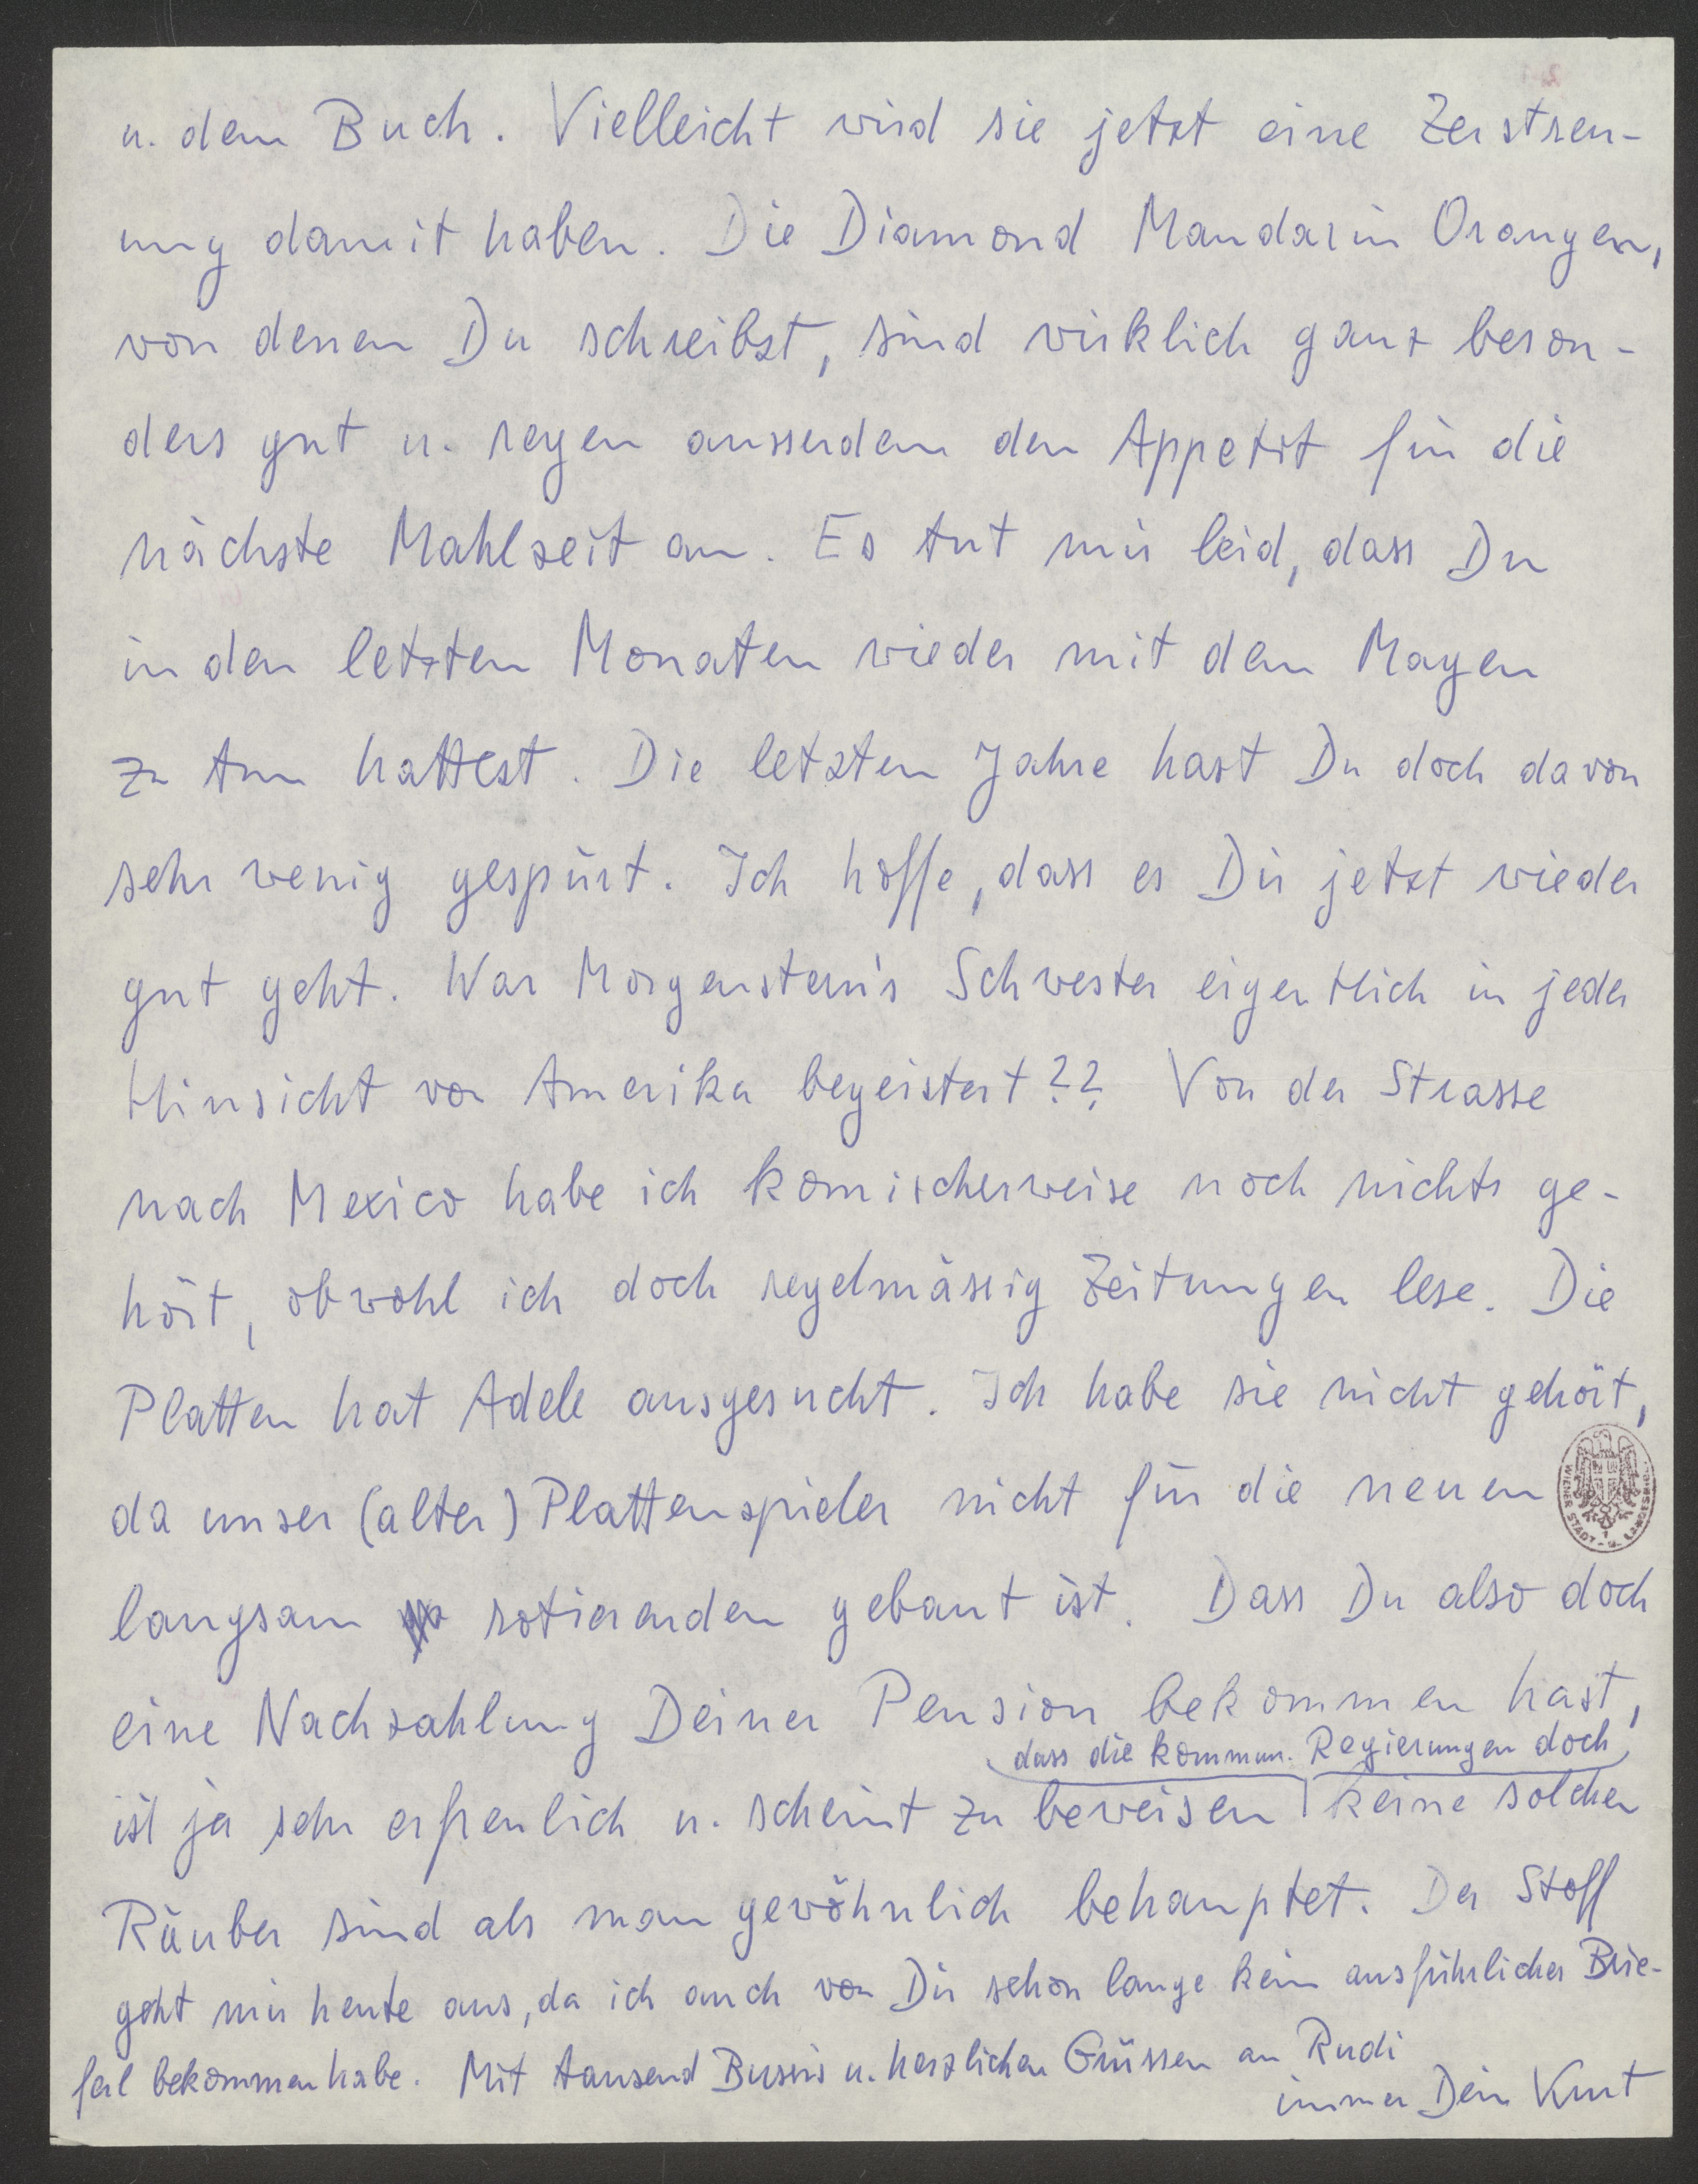 u. dem Buch. Vielleicht wird sie jetzt eine Zerstreu-
ung damit haben. Die Diamond Mandarin Orangen,
von denen Du schreibst, sind wirklich ganz beson-
ders gut u. regen ausserdem den Appetit für die
nächste Mahlzeit an. Es tut mir leid, dass Du
in den letzten Monaten wieder mit dem Magen
zu tun hattest. Die letzten Jahre hast Du doch davon
sehr wenig gespürt. Ich hoffe, dass es Dir jetzt wieder
gut geht. War Morgenstern's Schwester eigentlich in jeder
Hinsicht von Amerika begeistert?? Von der Strasse
nach Mexico habe ich komischerweise noch nichts ge-
hört, obwohl ich doch regelmässig Zeitungen lese. Die
Platten hat Adele ausgesucht. Ich habe sie nicht gehört,
da unser (alter) Plattenspieler nicht für die neuen
WIENER STADT- U. LANDESBIBL.
langsam rotierenden gebaut ist. Dass Du also doch
eine Nachzahlung Deiner Pension bekommen hast,
dass die kommun. Regierungen doch
ist ja sehr erfreulich u. scheint zu beweisen keine solchen
Räuber sind als man gewöhnlich behauptet. Der Stoff
geht mir heute aus, da ich auch von Dir schon lange kein ausführliches Brie-
ferl bekommen habe. Mit tausend Bussis u. herzlichen Grüssen an Rudi
immer Dein Kurt